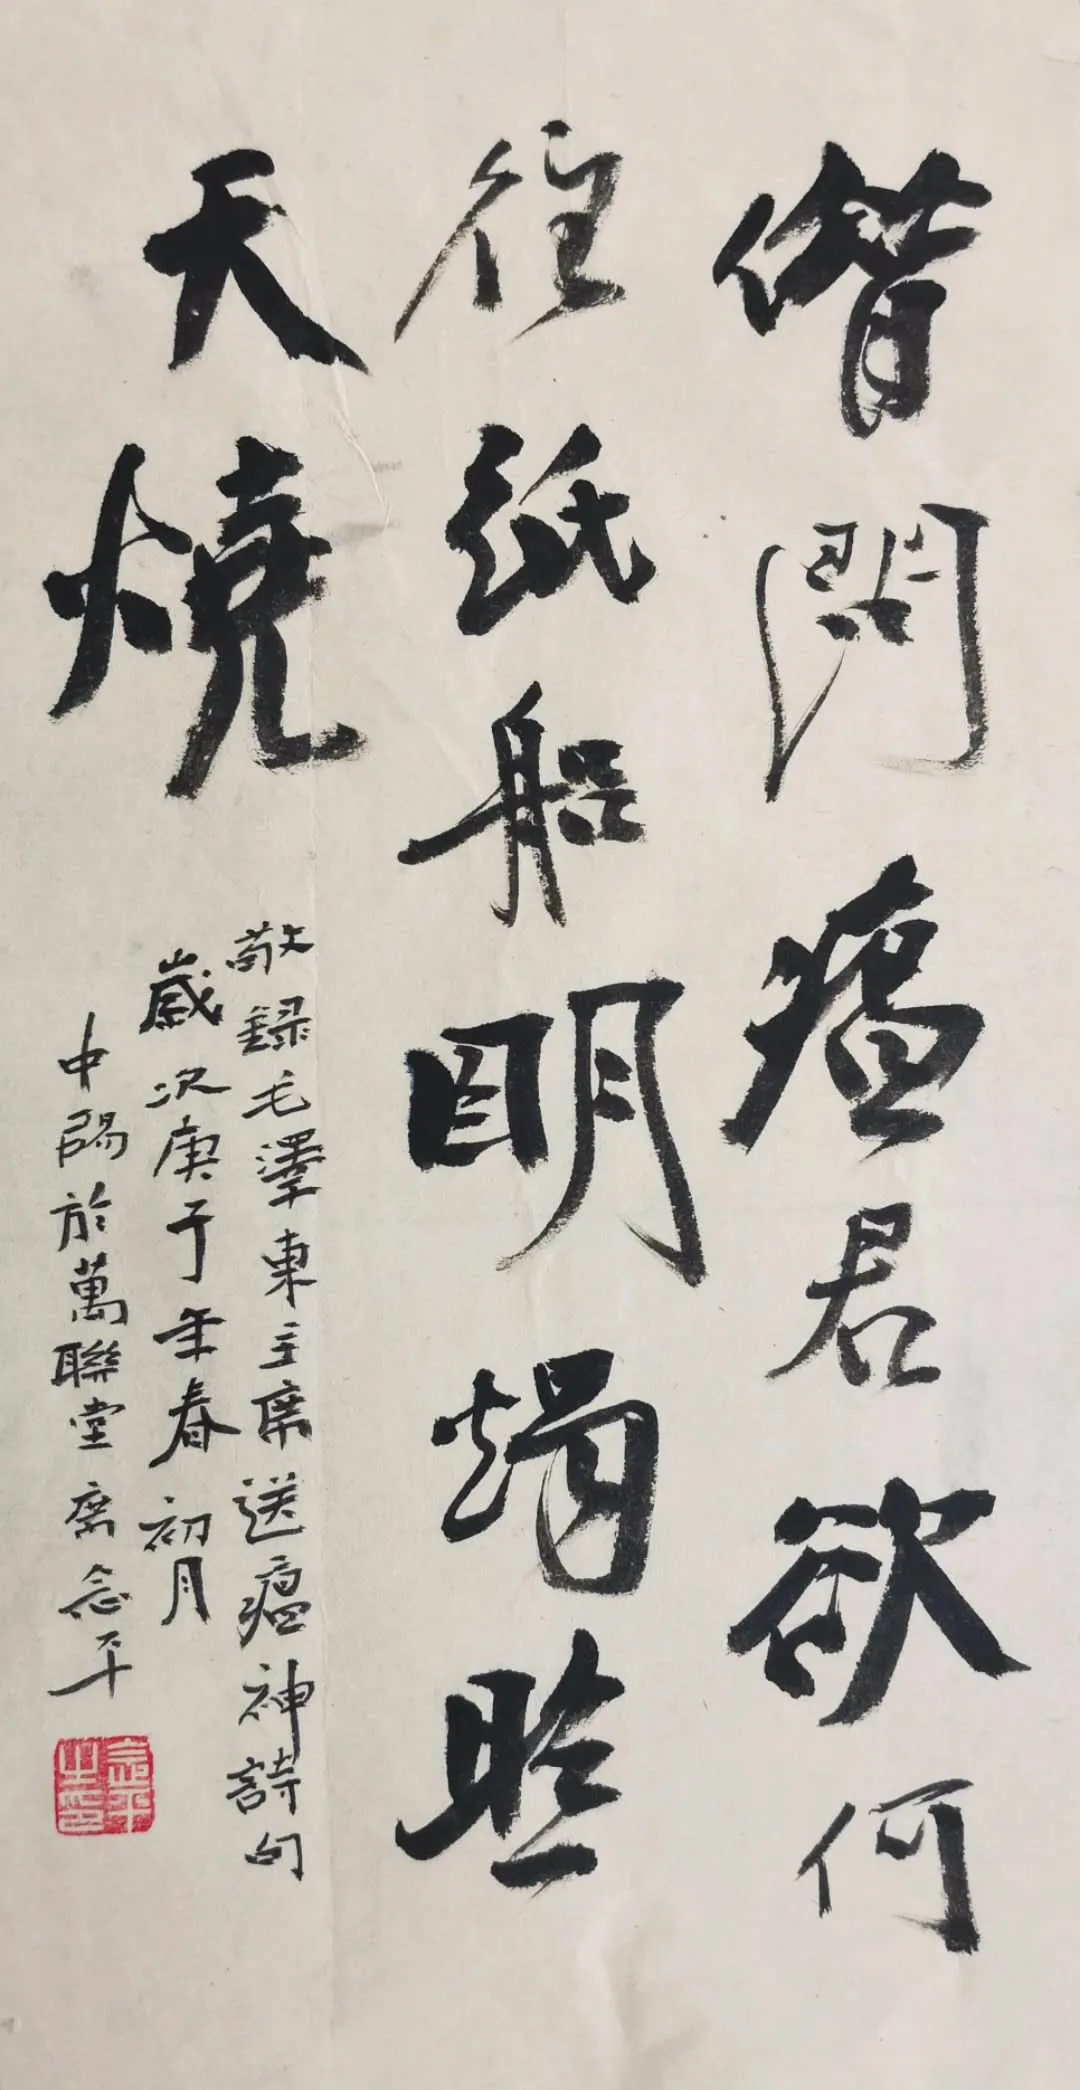 借問瘟君欲何
往紙船明燭照
天燒
敬録毛澤東主席送瘟神詩句
歲次庚子年春初月
中陽於萬聯堂席念平
念平之印